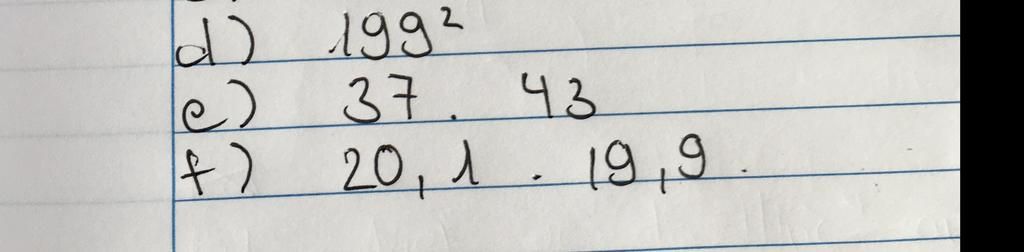 d) 199²
e) 37 . 43
f) 20,1 . 19,9.